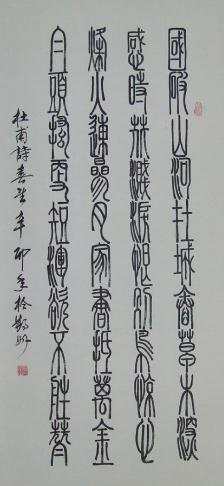 國破山河在城春草木深
感時花濺淚恨別鳥驚心
烽火連三月家書抵萬金
白頭搔更短渾欲不勝簪
杜甫詩春望辛卯